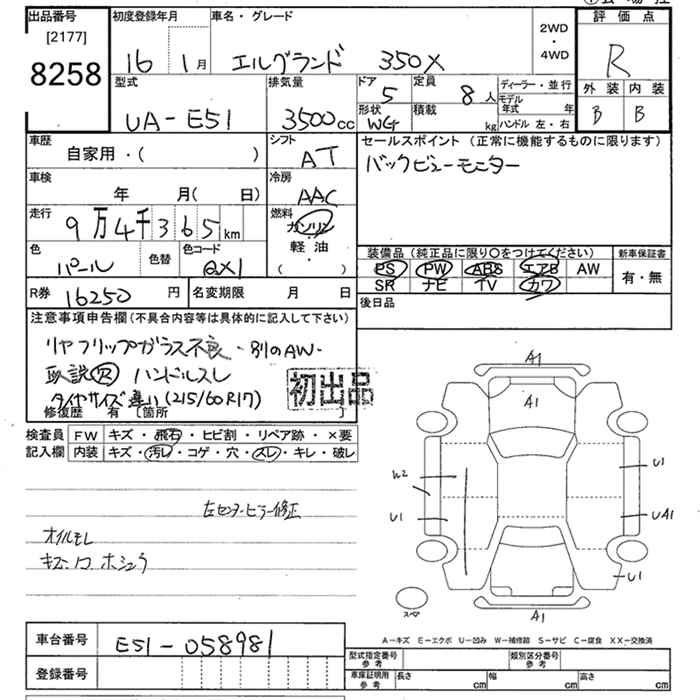 出品番号
[2177]
8258
初度登録年月
16 1月
車名・グレード
エルグランド 350X
2WD
・
4WD
評価点
R
外装 内装
B B
型式
UA-E51
排気量
3500cc
ドア
5
定員
8人
ディーラー・並行
モデル年式 年
形状
WG
積載
kg
ハンドル 左・右
車歴
自家用・( )
シフト
AT
セールスポイント(正常に機能するものに限ります)
バックビューモニター
車検
年 月( 日)
冷房
AAC
走行
9万4千365km
燃料
ガソリン
軽油
( )
色
パール
色替
色コード
QX1
装備品(純正品に限り○をつけてください)
新車保証書
PS PW ABS エアB AW
SR ナビ TV カワ
有・無
R券 16250円
名変期限 月 日
後日品
注意事項申告欄(不具合内容等は具体的に記入して下さい)
リヤフリップガラス不良・別のAW・
取説欠 ハンドルスレ
タイヤサイズ違い(215/60R17)
修復歴 有 [箇所 ]
初出品
検査員記入欄
FW キズ・飛石・ヒビ割・リペア跡・×要
内装 キズ・汚レ・コゲ・穴・スレ・キレ・破レ
左センターピラー修正
オイルモレ
A1
A1
W2
U1
U1
UA1
U1
スペア
A1
A―キズ E―エクボ U―凹み W―補修跡 S―サビ C―腐食 XX―交換済
車台番号
E51-058981
登録番号
型式指定番号
参考
類別区分番号
参考
車庫証明用
参考
長さ cm
幅 cm
高さ cm